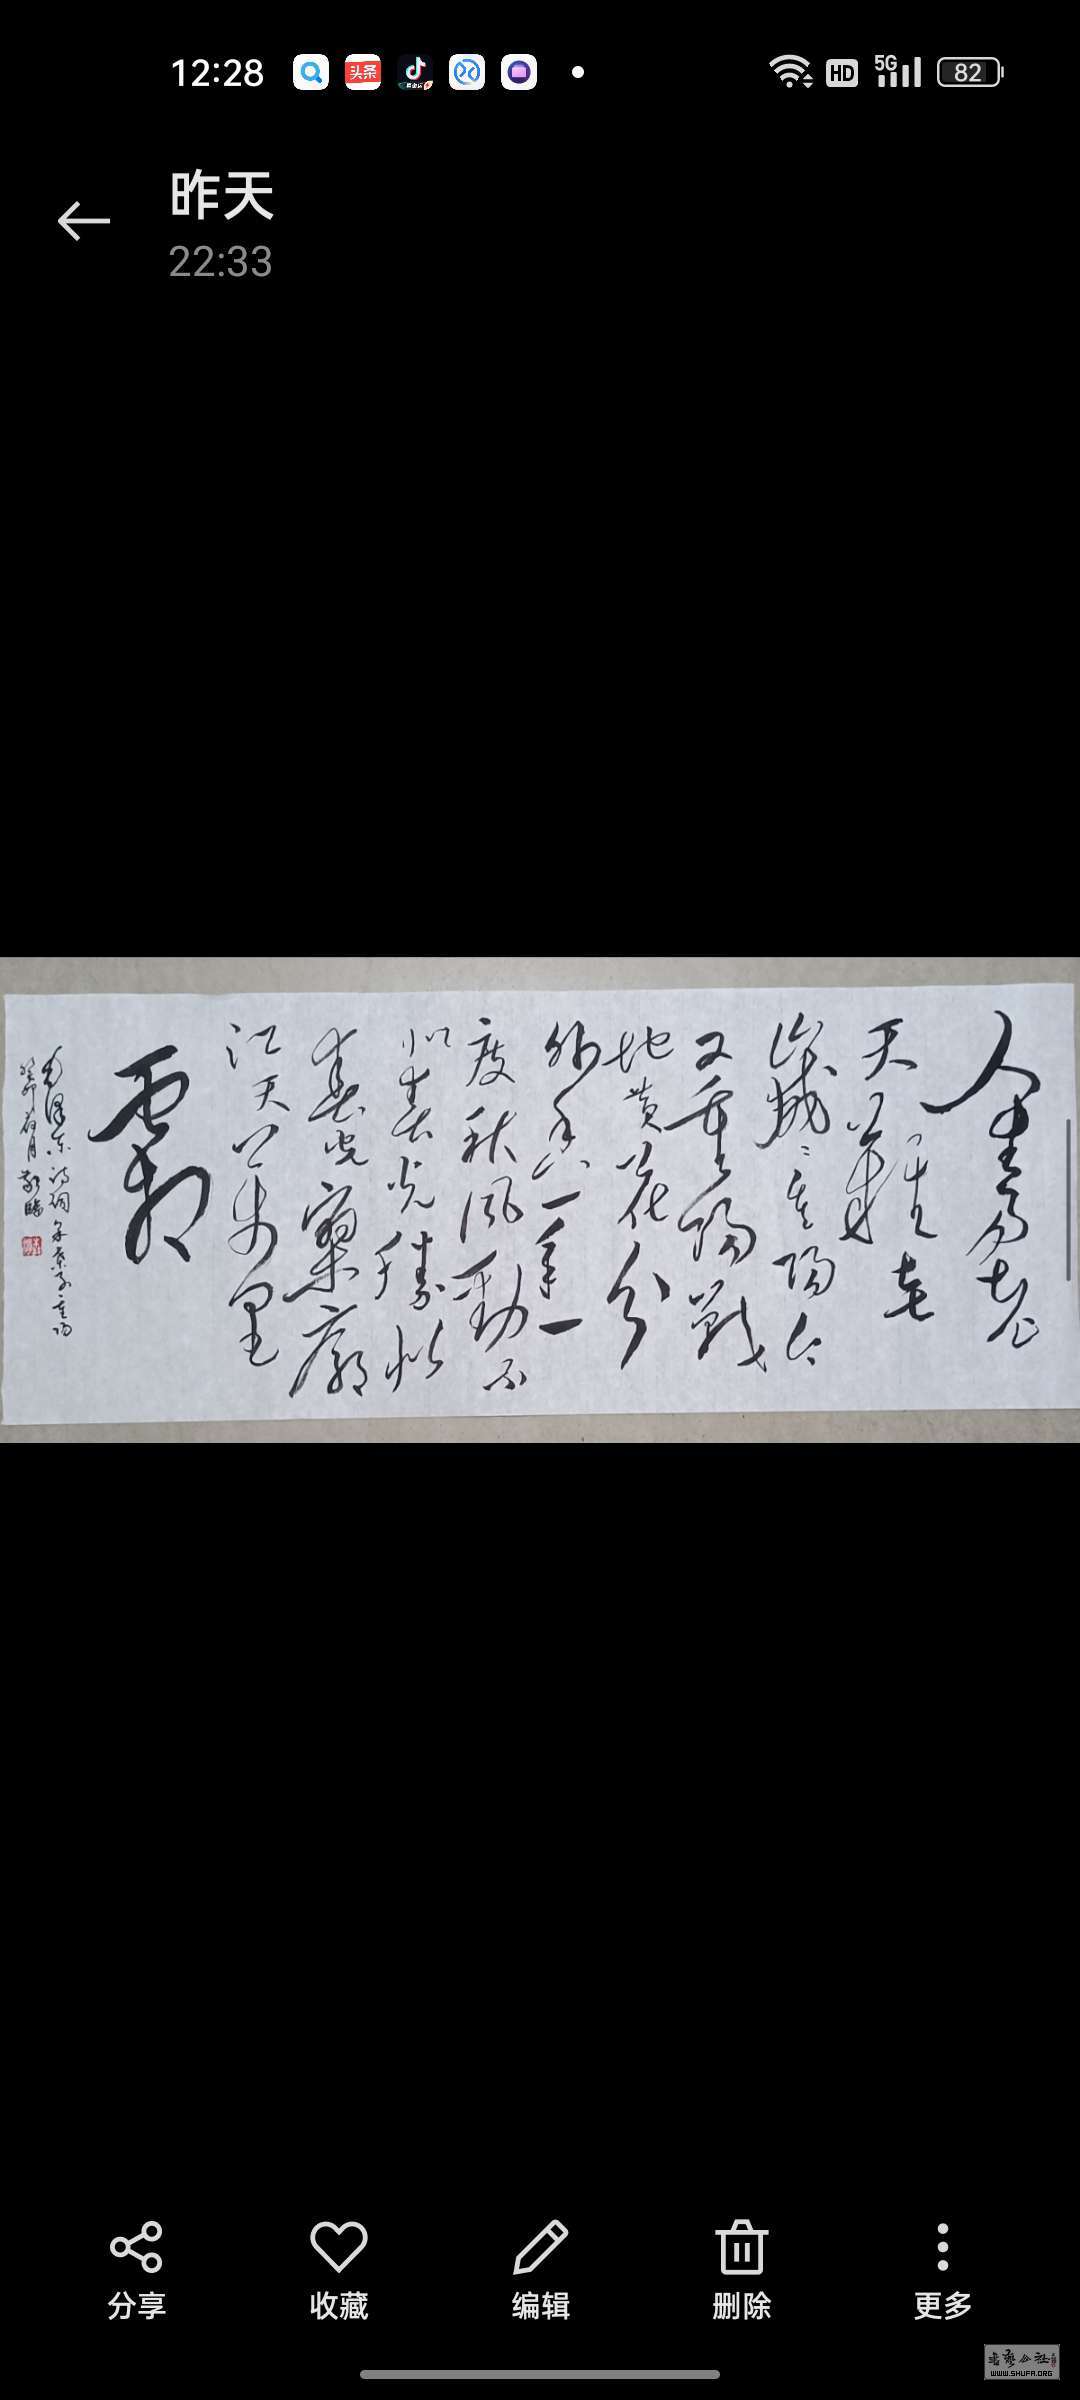 12:28
头条
HD
5G
82
昨天
22:33
人生易老
天難老
歲々重陽今
又重陽戰
地黃花分
外香一年一
度秋風勁不
似春光勝似
春光寥廓
江天萬里
霜
毛澤东诗词采桑子重阳
癸卯月敬臨
分享
收藏
编辑
删除
更多
WWW.SHUFA.ORG